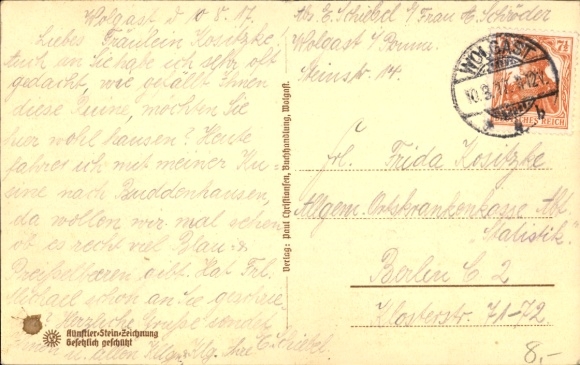 Wolgast d 10.8.17.
Liebes Fräulein Kositzke!
Auch an Sie habe ich sehr oft
gedacht, wie gefällt Ihnen
diese Ruine, möchten Sie
hier wohl hausen? Heute
fahre ich mit meiner Ku-
sine nach Buddenhausen,
da wollen wir mal sehen
ob es recht viel Blau- u.
Preißelbeeren gibt. Hat Frl.
Michael schon an Sie geschrie
Herzliche Grüße sendet
Ihnen u. allen Ihre E. Schiebel.
Künstler-Stein-Zeichnung
Gesetzlich geschützt
Verlag: Paul Christiansen, Buchhandlung, Wolgast.
Abs. E. Schiebel b/ Frau E. Schröder
Wolgast i/ Pomm.
Steinstr. 14.
WOLGAST
10.8.17. 11-12V.
* a b
7½
DEUTSCHES REICH
Frl. Frida Kositzke
Allgem. Ortskrankenkasse Abt.
"Statistik"
Berlin C 2
Klosterstr. 71-72
8.-